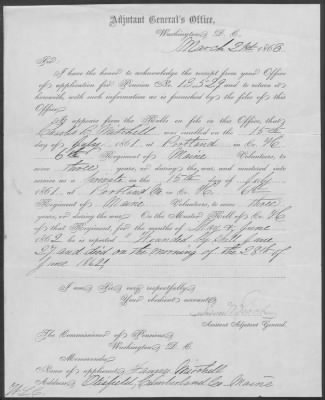 Adjutant General's Office,
Washington, D. C.
March 1863.
Sir:
I have the honor to acknowledge the receipt from your Office
of application for Pension No. 13,529 and to return it
herewith, with such information as is furnished by the files of this
Office.
It appears from the Rolls on file in this Office, that
Charles Mitchell was enrolled on the 15th
day of July, 1861, at Portland in Co. K,
6th Regiment of Maine Volunteers, to serve
three years, or during the war, and mustered into
service as a Private on the 15th day of July,
1861, at Portland, in Co. K, 6th
Regiment of Maine Volunteers, to serve three
years, or during the war. On the Muster Roll of Co. K
of that Regiment, for the months of May & June
1862, he is reported Wounded by shell June
27 and died on the morning of the 28th of
June 1862
I am, Sir, very respectfully,
Your obedient servant,
Assistant Adjutant General.
The Commissioner of Pensions,
Washington, D. C.
Memoranda:
Name of applicant, Mitchell
Address, Otisfield, Cumberland Co. Maine